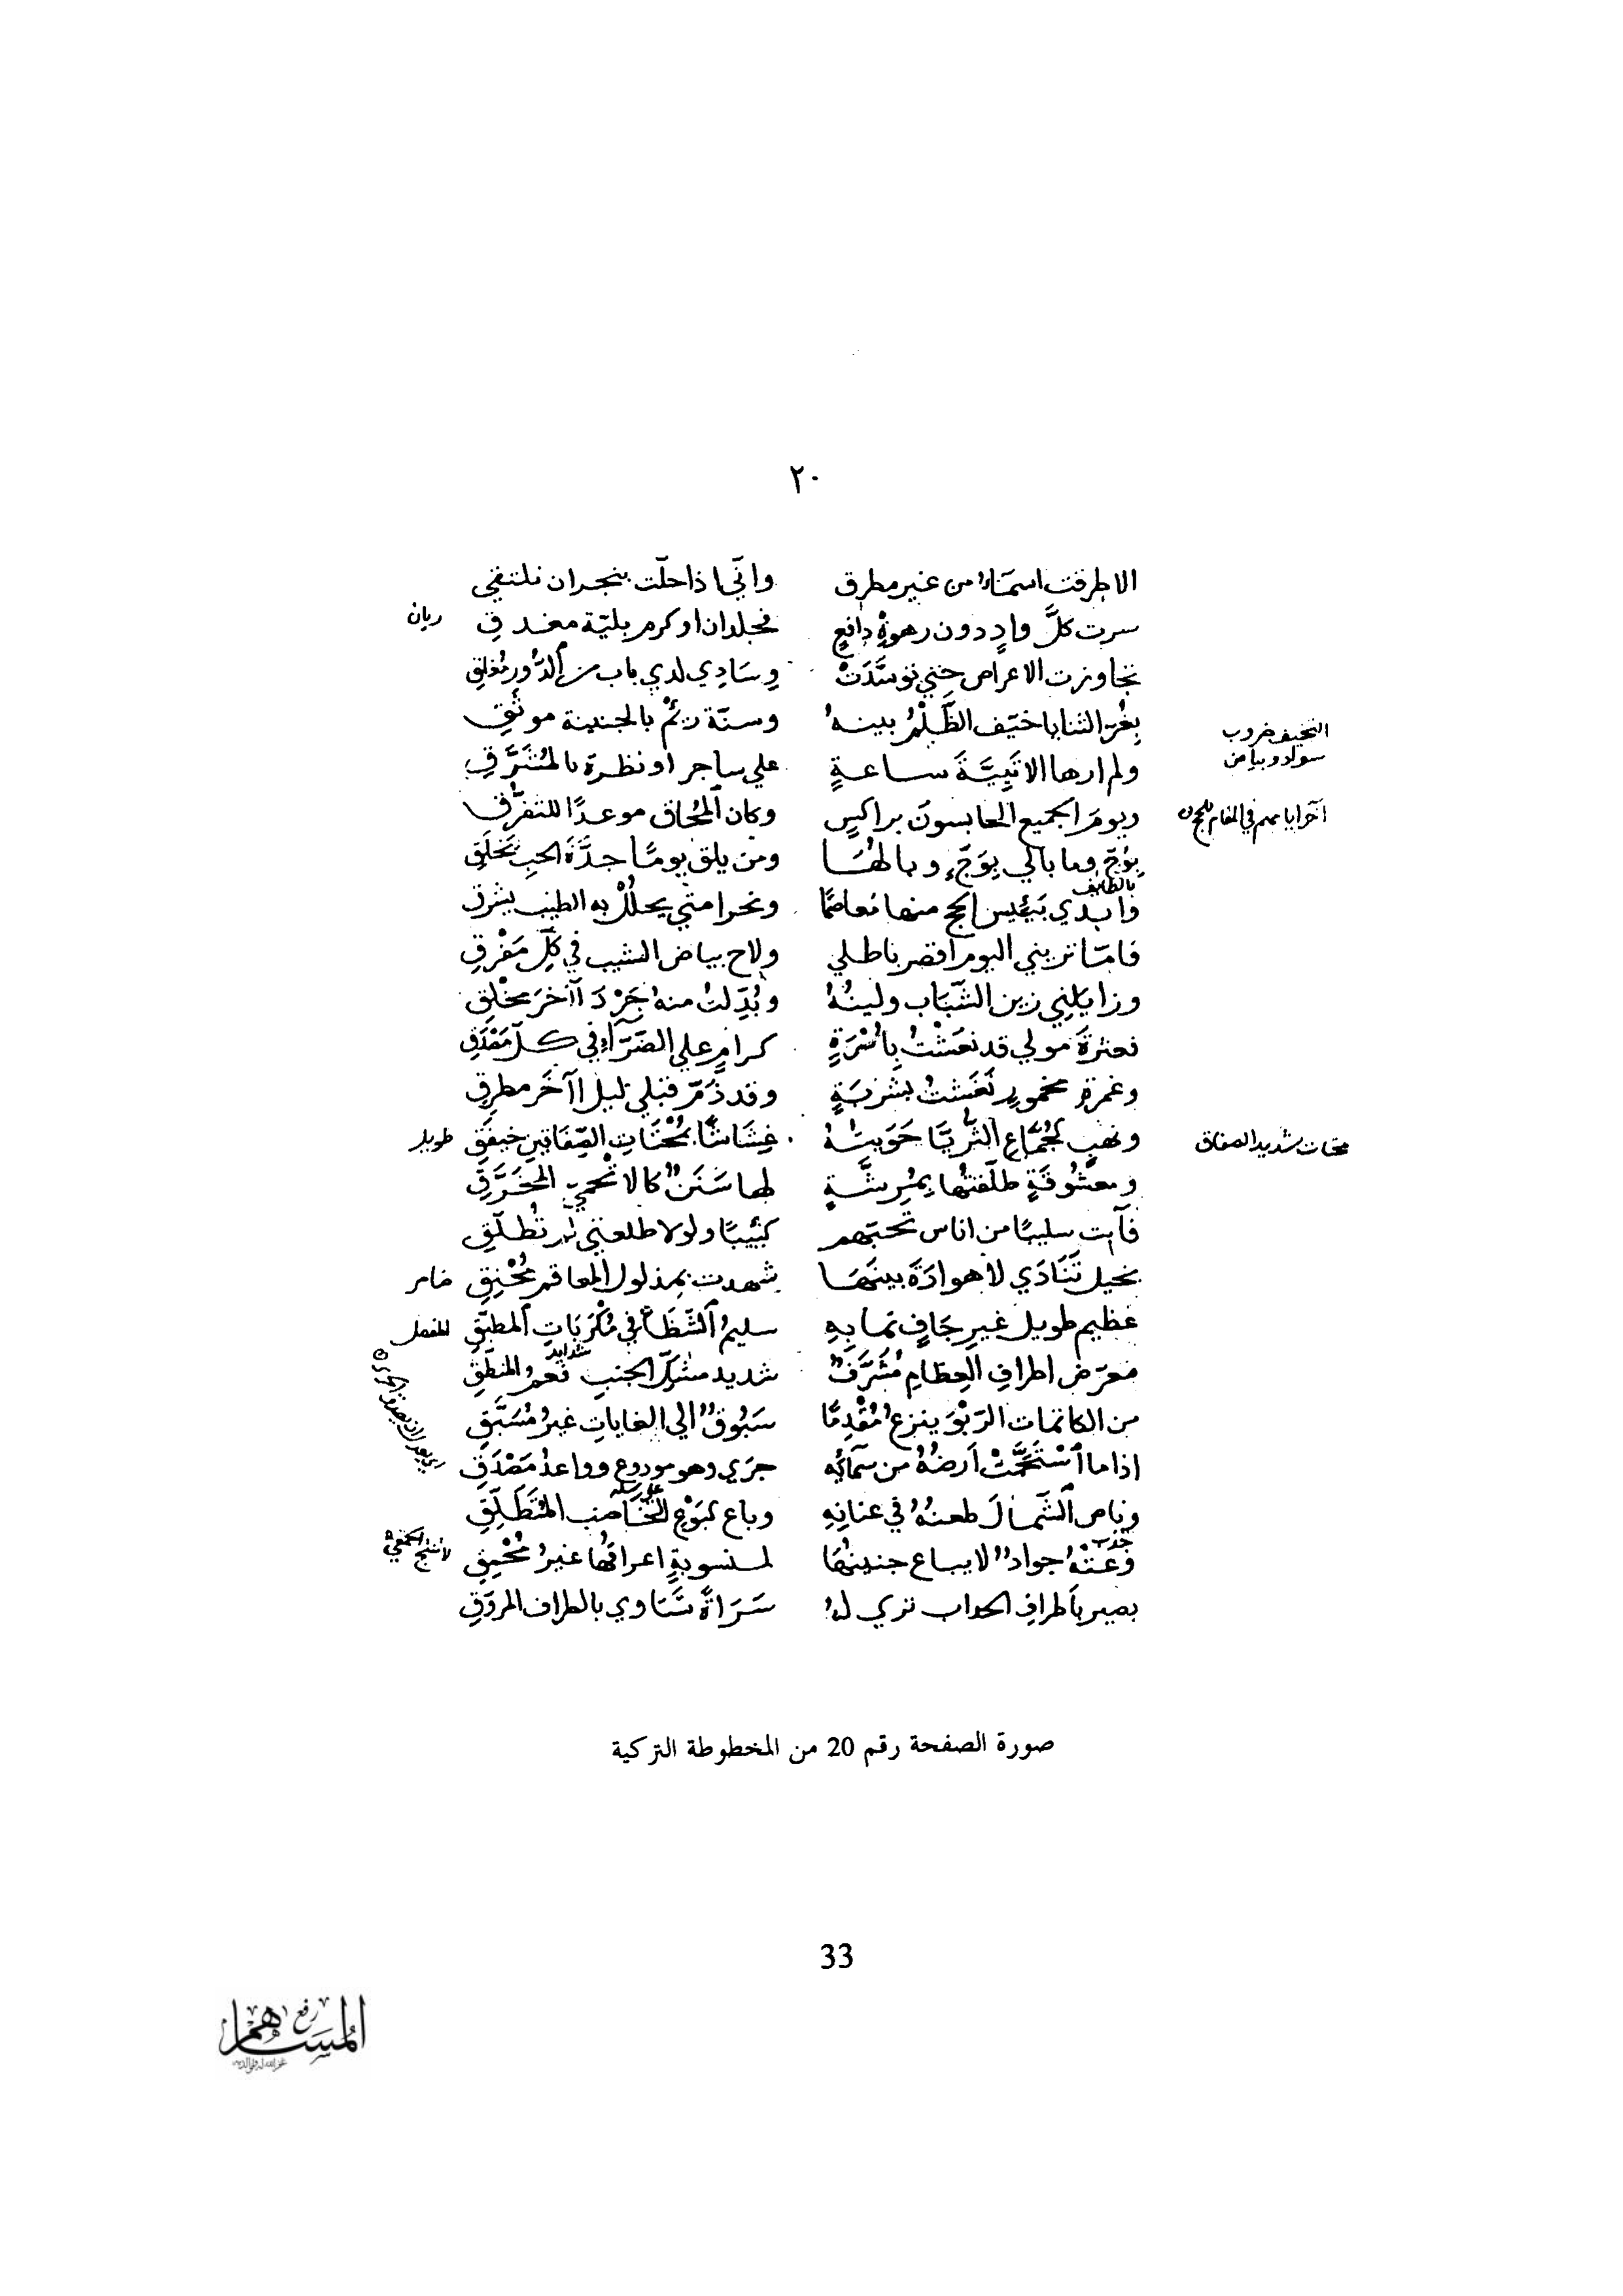 ٢٠
الا طرقت اسمَاءُ من غير مطرق وانّي اذا حلّت بنجران نلتقي
سرت كلَّ وادٍ دون رهوةَ دافعٍ فجلدان او كرم بليّة مغدقِ ريان
تجاوزت الاعراض حتي توسَّدَتْ وِسَادِي لدي باب من اَلدُّور مُغلقِ
بِغُرّ الثنايا خيّف الظَّلْمُ بينهُ وسنّة رئمٌ بالجنينة موثَقِ
التخييف ضروب
سواد وبياض
ولم ارها الا تَئِيَّةَ ساعةٍ علي ساجر او نظرة بالمُشَرَّقِ
ويومَ الجميع الحابسونَ براكسٍ وكان اَلمُحَاق موعدًا للتفرُّق
آخر ايامهم في المقام
بِوَجّ وما بالي بِوَجٍّ وبالُهَا ومن يلق يومًا جدَّةَ الحب تَخلَقِ
بالطايف
وابدي بَئِيس الحج منها مَعاصمًا ونحرا متي يحلُلْ به الطيب يشرق
فامّا تريني اليوم اقصر باطلي ولاح بياض الشيب في كلّ مَفْرقِ
وزايلنِي زين الشَّبَاب ولينُهُ وبُدِّلتُ منهُ جَرْدَ آخَرَ مخْلِقِ
فعثرةَ مولي قد نعَشْتُ بأُسْرَةٍ كرامٍ علي الضرَّاءِ في كلّ مَصْدَقِ
وغمرةِ مخمورٍ نَعَشتُ بشَربَةٍ وقد ذمّ قبلي ليل آخَر مطرقِ
ونهبٍ كجُمّاعِ الثُّريّا حَوَيتُهُ غِشَاشًا بمُحْتَاتِ الصِّفَاقَينِ خيفَقِ طويل
محتات شديد الصفاق
ومعشُوقَةٍ طلّقتُها بِمُرِشَّةٍ لها سَنَنٌ كالاتْحميّ المخَرَّقِ
فآبت سليبًا من اناس تحبّهم كئيبًا ولولا طلعتي لم تُطلَّقِ
بخيل تَنَادَي لا هوادَةَ بينَهَا شهدت بمذلول المعاقم مُحْنِقِ ضامر
عَظيم طويل غيرِ جَافٍ نما بِهِ سليمُ اَلشَّظَا في مُكْرَبَاتِ اَلمطبّقِ المفصل
مَعرّض اطرافِ العِظامِ مُشَرَّفٌ شديد مشَكّ الجنبِ فعمُ المنَطّقِ
شدايد
من الكاتمات الرَبْوَ ينزعُ مُقْدِمًا سَبُوقٌ الي الغاياتِ غيرُ مُسَبَّقِ
اذا ما اَسْتَحَمَّتْ اَرضُهُ من سَمَائِهِ جرَي وهو مودوع وواعدُ مَصْدَقِ
وناص الشَّمالَ طعنُهُ في عنانِهِ وباع كبَوْعِ الخاضب المُتَطَلِّقِ
وَعَتْهُ جوادٌ لا يباع جنينُهَا لمنسوبةٍ اعراقُها غيرُ مُحْمِقِ
بصير بأطرافِ الحداب تري لهُ سَرَاةً تُسَاوي بالطراف المروّقِ
صورة الصفحة رقم 20 من المخطوطة التركية
33
رفع
المساهم